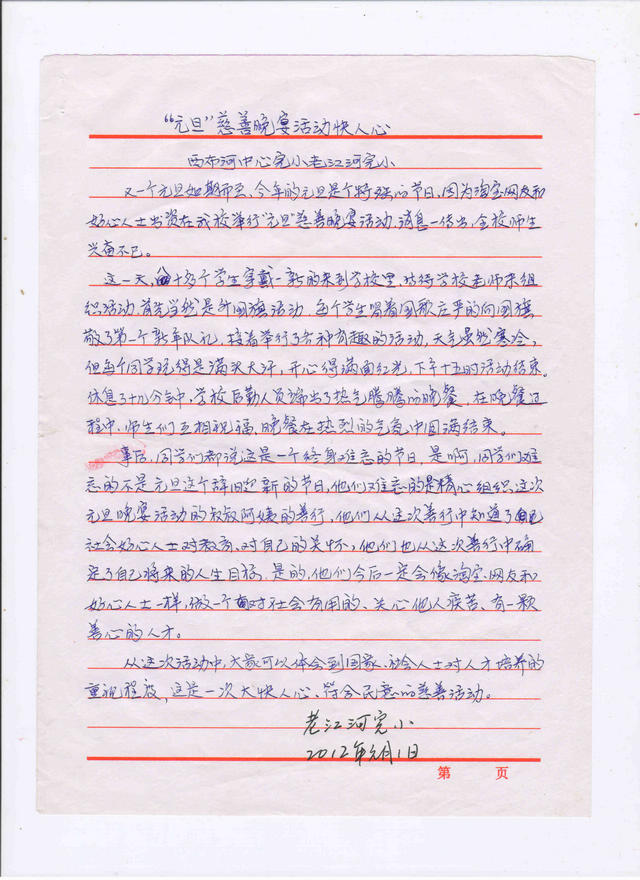 “元旦”慈善晚宴活动快人心
西布河中心完小老江河完小
又一个元旦如期而至,今年的元旦是个特殊的节日,因为淘宝网友和
好心人士出资在我校举行“元旦”慈善晚宴活动.消息一传出,全校师生
兴奋不已。
这一天,八十多个学生穿戴一新的来到学校里,等待学校老师来组
织活动.首先当然是升国旗活动.每个学生唱着国歌庄严的向国旗
敬了第一个新年队礼,接着举行了各种有趣的活动,天气虽然寒冷,
但每个同学玩得是满头大汗,开心得满面红光,下午十五时活动结束。
休息了十几分钟,学校后勤人员端出了热气腾腾的晚餐,在晚餐过
程中,师生们互相祝福,晚餐在热烈的气氛中圆满结束。
事后,同学们都说这是一个终身难忘的节日,是啊,同学们难
忘的不是元旦这个辞旧迎新的节日,他们难忘的是精心组织这次
元旦晚宴活动的叔叔阿姨的善行,他们从这次善行中知道了
社会好心人士对教育、对自己的关怀,他们也从这次善行中确
定了自己将来的人生目标,是的,他们今后一定会像淘宝网友和
好心人士一样,做一个对社会有用的、关心他人疾苦、有一颗
善心的人才。
从这次活动中,大家可以体会到国家、社会人士对人才培养的
重视程度,这是一次大快人心、符合民意的慈善活动。
老江河完小
2012年元月1日
第 页